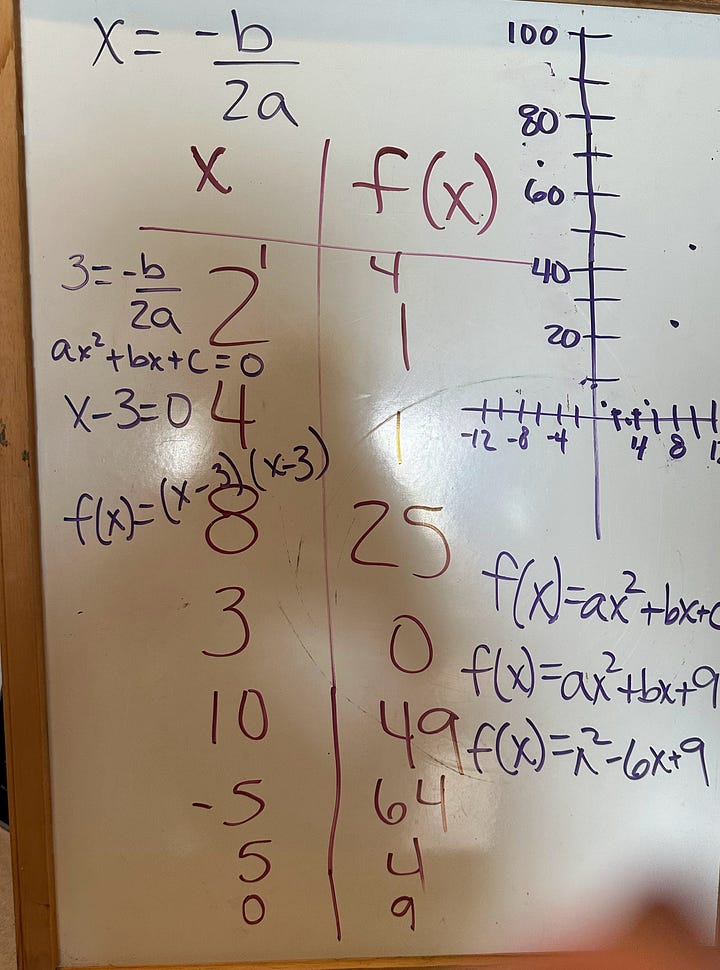 x = -b
2a
x f(x)
1 4
2 1
4 1
8 25
3 0
10 49
-5 64
5 4
0 9
3 = -b
2a
ax²+bx+c=0
x-3=0
f(x)=(x-3)(x-3)
100
80
60
40
20
-12 -8 -4 4 8
f(x)=ax²+bx+c
f(x)=ax²+bx+9
f(x)=x²-6x+9